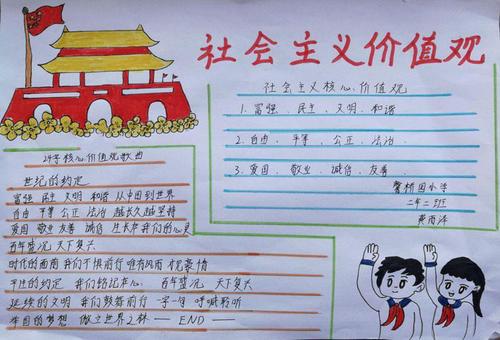 社会主义价值观
社会主义核心价值观
1. 富强、民主、文明、和谐
2. 自由、平等、公正、法治、
3. 爱国、敬业、诚信、友善
园小学
二年二班
24字核心价值观歌曲
世纪的约定
富强 民主 文明 和谐 从中国到世界
自由 平等 公正 法治 越长久越坚持
爱国 敬业 友善 诚信 我们的心灵
百年盛况 天下复兴
时代的 我们不惧前行 唯有风雨 豪情
平生的约定 我们铭记本心 百年盛况 天下复兴
延续的文明 我们鼓舞前行 一字一句 呼喊聆听
中国的梦想 傲立世界之林 —— END ——